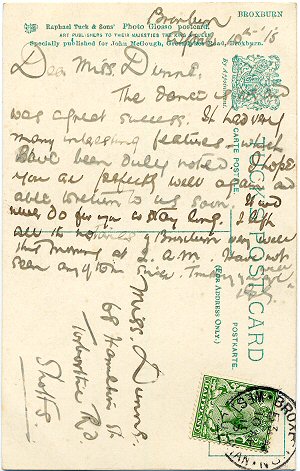 BROXBURN
Raphael Tuck & Sons' Photo Glosso postcard.
ART PUBLISHERS TO THEIR MAJESTIES THE KING
Specially published for John McGough, Broxburn.
Broxburn
10th 1/15
Dear Miss Dunne.
The dance
was a great success. It had very
many interesting features, which
have been duly noted. I hope
you are perfectly well again and
able to return to us soon. It wd
never do for you to stay long. I left
all the of Broxburn very well
this morning at 2. a.m. Have not
seen any of them since. Trusting
By Appointment.
TUCK'S POST CARD
CARTE POSTALE
POSTKARTE.
(FOR ADDRESS ONLY.)
Miss. Dunne.
68 Hamilton St.
Torbothie Rd.
Shotts.
BROXBURN